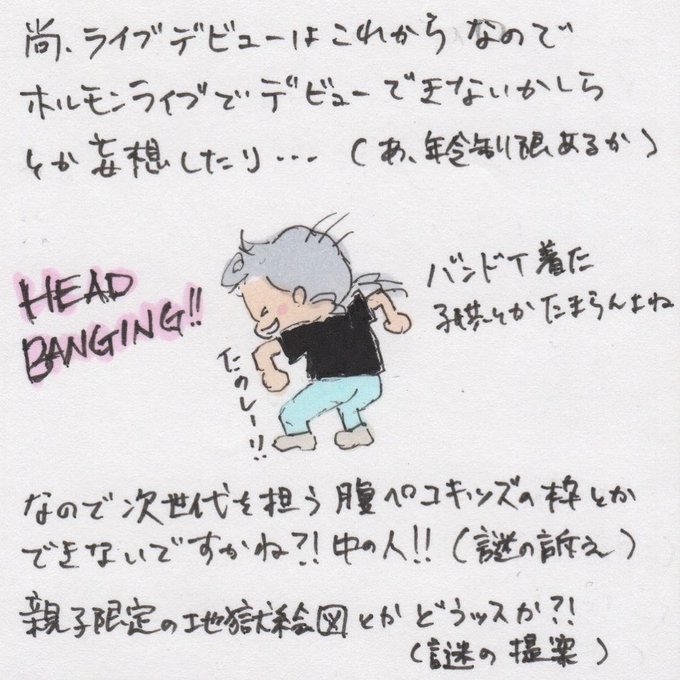 尚、ライブデビューはこれからなので
ホルモンライブでデビューできないかしら
とか妄想したり… (あ、年令制限あるか)
HEAD
BANGING!!
バンドT着た
子供とかたまらんよね
たのしーッ!!
なので次世代を担う腹ペコキッズの枠とか
できないですかね?!中の人!!(謎の訴え)
親子限定の地獄絵図とかどうッスか?!
(謎の提案)